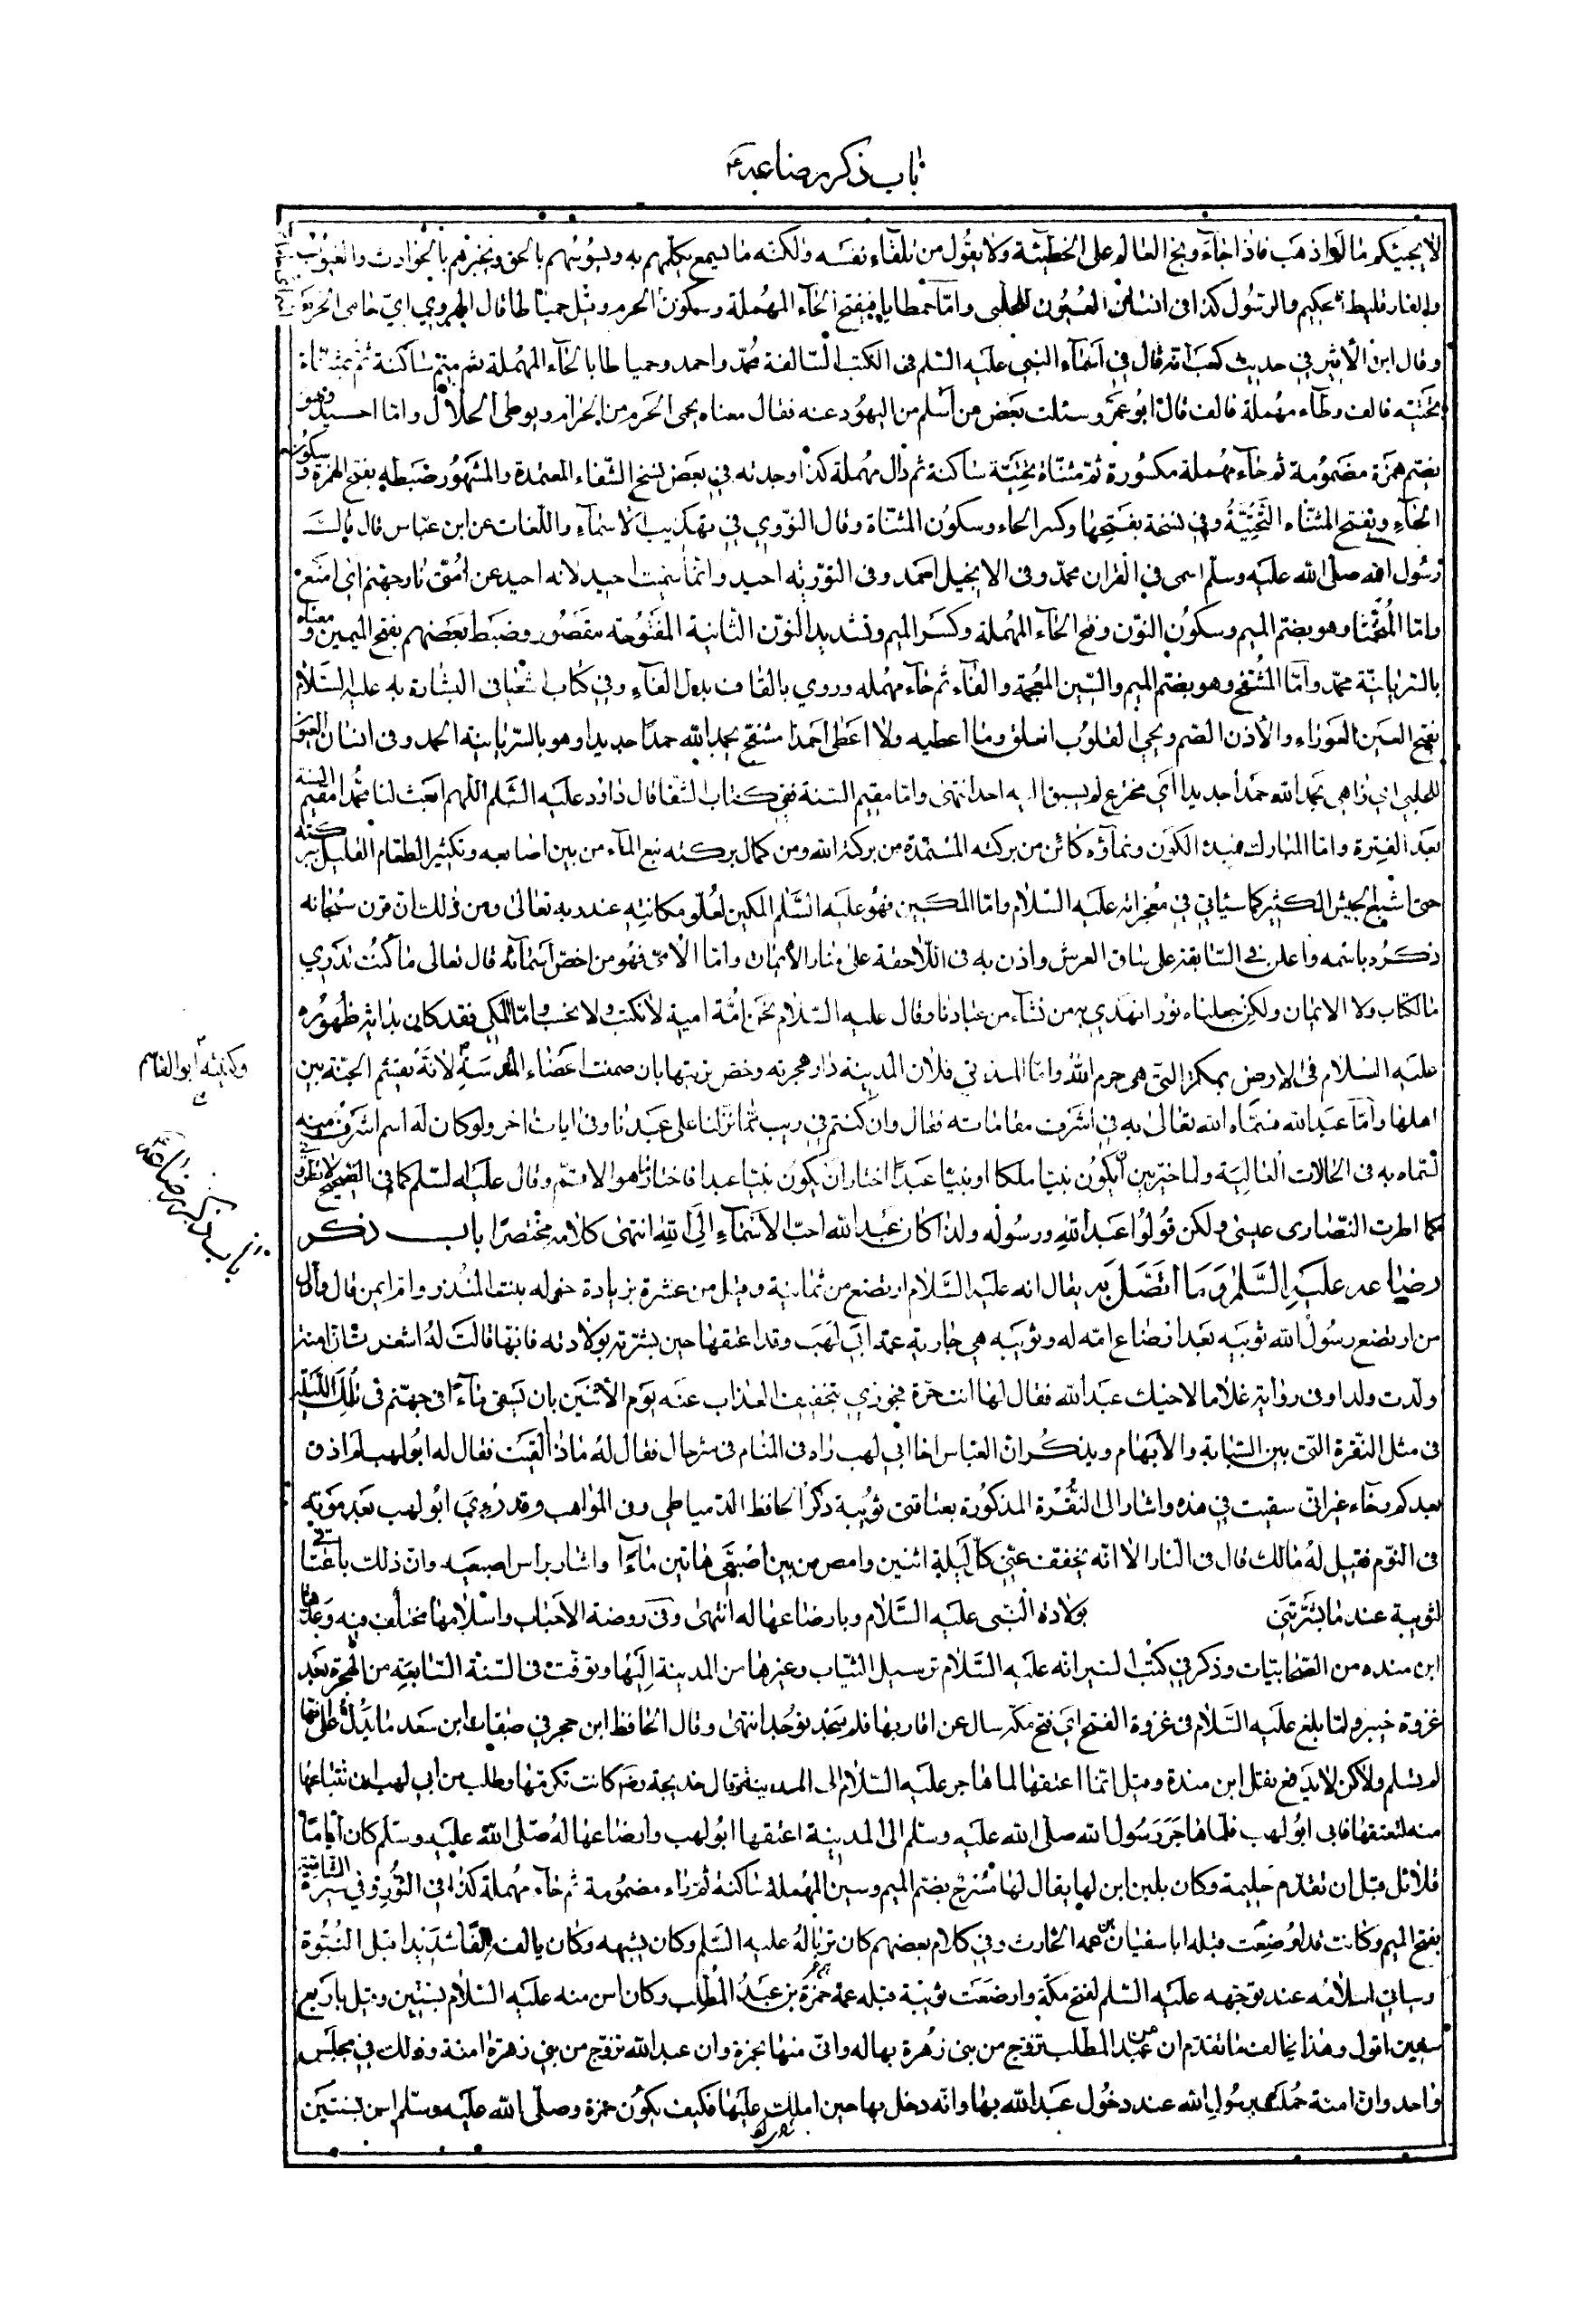 باب ذكر رضاعه ع م
لا يجيئكم ما لم اذهب فاذا جاء وبخ العالم على الخطيئة ولا يقول من تلقاء نفسه ولكنه ما يسمع يكلمهم به ويسوسهم بالحق ويخبرهم بالحوادث والغيوب
والفارقليط الحكيم والرسول كذا في انسان العيون للحلبي واما حمطايا فبفتح الحاء المهملة وسكون الحرم وقيل حمياطا قال الهروي اي حامي الحرم
وقال ابن الاثير في حديث كعب انه قال في اسماء النبي عليه السلم في الكتب السالفة محمد واحمد وحمياطا بالحاء المهملة ثم ميم ساكنة ثم بمثناة
تحتيه فالف وطاء مهملة فالف قال ابو عمر وسئلت بعض من اسلم من اليهود عنه فقال معناه يحمى الحرم من الحرام ويوطى الحلال واما احسيد وهو
بضم همزة مضمومة ثم حاء مهملة مكسورة ثم مثناة تحتية ساكنة ثم دال مهملة كذا وجدته في بعض نسخ الشفاء المعتمدة والمشهور ضبطه بفتح الهمزة وسكون
الحاء وبفتح المثناه التحتية وفي نسخة بفتحها وكسر الحاء وسكون المثناة وقال النووي في تهذيب الاسماء واللغات عن ابن عباس قال قال
رسول الله صلى الله عليه وسلم اسمى في القران محمد وفى الانجيل احمد وفى التورية احيد وانما سميت احيد لانه احيد عن امتى نار جهنم اي امنع
واما المنحمنا وهو بضم الميم وسكون النون وفتح الحاء المهملة وكسر الميم وتشديد النون الثانية المفتوحه مقصور وضبط بعضهم بفتح الميمين ومعناه
بالسريانية محمد واما المشفح وهو بضم الميم والشين المعجمة والفاء ثم حاء مهمله وروي بالقاف بدل الفاء وفي كتاب شعيا في البشارة به عليه السلام
يفتح العين العوراء والاذن الصم ويحيى القلوب الغلف وما اعطيه ولا اعطى احمدا مشفح يحمد الله حمدا جديدا وهو بالسريانية الحمد وفى انسان العيون
للحلبي اي زاهي يحمد الله حمدا جديدا اي مخترع لم يسبق اليه احد انتهى واما مقيم السنة ففي كتاب الشفا قال داود عليه السلم اللهم ابعث لنا محمدا مقيم السنة
بعد الفترة واما المبارك فبدء الكون ونماؤه كائن من بركته المستمدة من بركة الله ومن كمال بركته نبع الماء من بين اصابعه وتكثير الطعام القليل ببركته
حتى اشبع الجيش الكثير كما سياتي في معجزاته عليه السلام واما المكين فهو عليه السلم المكين لعلو مكانته عند ربه تعالى ومن ذلك ان قرن سبحانه
ذكره باسمه واعلن في السابقة على ساق العرش واذن به فى اللاحقة على منار الايمان واما الامي فهو من اخص اسمائه قال تعالى ما كنت تدري
ما الكتاب ولا الايمان ولكن جعلناه نورا نهدي به من نشاء من عبادنا وقال عليه السلام نحن امة امية لا نكتب ولا نحسب واما المكي فقد كان بداية ظهوره
عليه السلام فى الارض بمكة التى هى حرم الله واما المدني فلان المدينة دار هجرته وخص تربتها بان ضمت اعضاء المقدسة لانه بقسيم الجنة بين
اهلها واما عبد الله فسماه الله تعالى به في اشرف مقاماته فقال وان كنتم في ريب مما نزلنا على عبدنا وفى ايات اخر ولو كان له اسم اشرف منه
لسماه به فى الحالات العالية ولما خير بين ان يكون نبيا ملكا او نبيا عبدا اختار ان يكون نبيا عبدا فاختار ما هو الاتم وقال عليه السلم كما في الصحيح لا تطروني
كما اطرت النصارى عيسى ولكن قولوا عبد الله ورسوله ولذا كان عبد الله احب الاسماء الى الله انتهى كلامه مختصرا باب ذكر
رضاعه عليه السلم وما اتصل به يقال انه عليه السلام ارتضع من ثمانية وقيل من عشرة بزيادة خوله بنت المنذر وام ايمن قال واول
من ارتضع رسول الله ثويبه بعد ارضاع امه له وثويبه هي جارية عمه ابي لهب وقد اعتقها حين بشرته بولادته فانها قالت له اشعرت ان امنة
ولدت ولدا وفى رواية غلاما لاخيك عبد الله فقال لها انت حرة فجوزي بتخفيف العذاب عنه يوم الاثنين بان يسقى ماء فى جهنم في تلك الليلة
فى مثل النقرة التى بين السبابة والابهام ويذكر ان العباس اخا ابي لهب راه فى المنام فى شر حال فقال له ماذا لقيت فقال له ابو لهب لم اذق
بعدكم رخاء غير انى سقيت في هذه واشار الى النقرة المذكورة بعتاقتى ثويبة ذكر الحافظ الدمياطي وفى المواهب وقد رءي ابو لهب بعد موته
فى النوم فقيل له ما لك قال فى النار الا انه يخفف عنى كل ليلة اثنين وامص من بين اصبعي هاتين ماء واشار براس اصبعيه وان ذلك باعتاقي
لثويبة عند ما بشرتني بولادة النبى عليه السلام وبارضاعها له انتهى وفى روضة الاحباب واسلامها مختلف فيه وعدها
ابن منده من الصحابيات وذكر في كتب السير انه عليه السلام ترسيل الثياب وغيرها من المدينة اليها وتوفت فى السنة السابعة من الهجرة بعد
غزوة خيبر ولما بلغ عليه السلام فى غزوة الفتح اي فتح مكة سال عن اقاربها فلم يجد توجد انتهى وقال الحافظ ابن حجر في طبقات ابن سعد ما يدل على انها
لم يسلم ولاكن لا يدفع نقل ابن مندة وقيل انما اعتقها لما هاجر عليه السلام الى المدينة وقال خديجة رضها كانت تكرمها وطلب من ابي لهب ان تبتاعها
منه لتعتقها فابى ابو لهب فلما هاجر رسول الله صلى الله عليه وسلم الى المدينة اعتقها ابو لهب وارضاعها له صلى الله عليه وسلم كان اياما
قلائل قبل ان تقدم حليمة وكان بلبن ابن لها يقال لها مسرح بضم الميم وسين المهملة ساكنة ثم راء مضمومة ثم حاء مهملة كذا فى النور وفي سيرة الشامية
بفتح الميم وكانت قد ارضعت قبله ابا سفيان بن عمه الحارث وفي كلام بعضهم كان تربا له عليه السلم وكان يشبهه وكان يالفه الفا شديدا قبل النبوة
وسياتي اسلامه عند توجهه عليه السلم لفتح مكة وارضعت ثويبة قبله عمه حمزة بن عبد المطلب وكان اسن منه عليه السلام بسنتين وقيل باربع
سنين اقول وهذا يخالف ما تقدم من ان عبد المطلب تزوج من بنى زهرة بهاله واتى منها بحمزة وان عبد الله تزوج من بني زهرة امنة وذلك في مجلس
واحد وان امنة حملت برسول الله عند دخول عبد الله بها وانه دخل بها حين املك عليها فكيف يكون حمزة وصلى الله عليه وسلم اسن بسنتين
وكنيته ابو القاسم
باب ذكر رضاعه